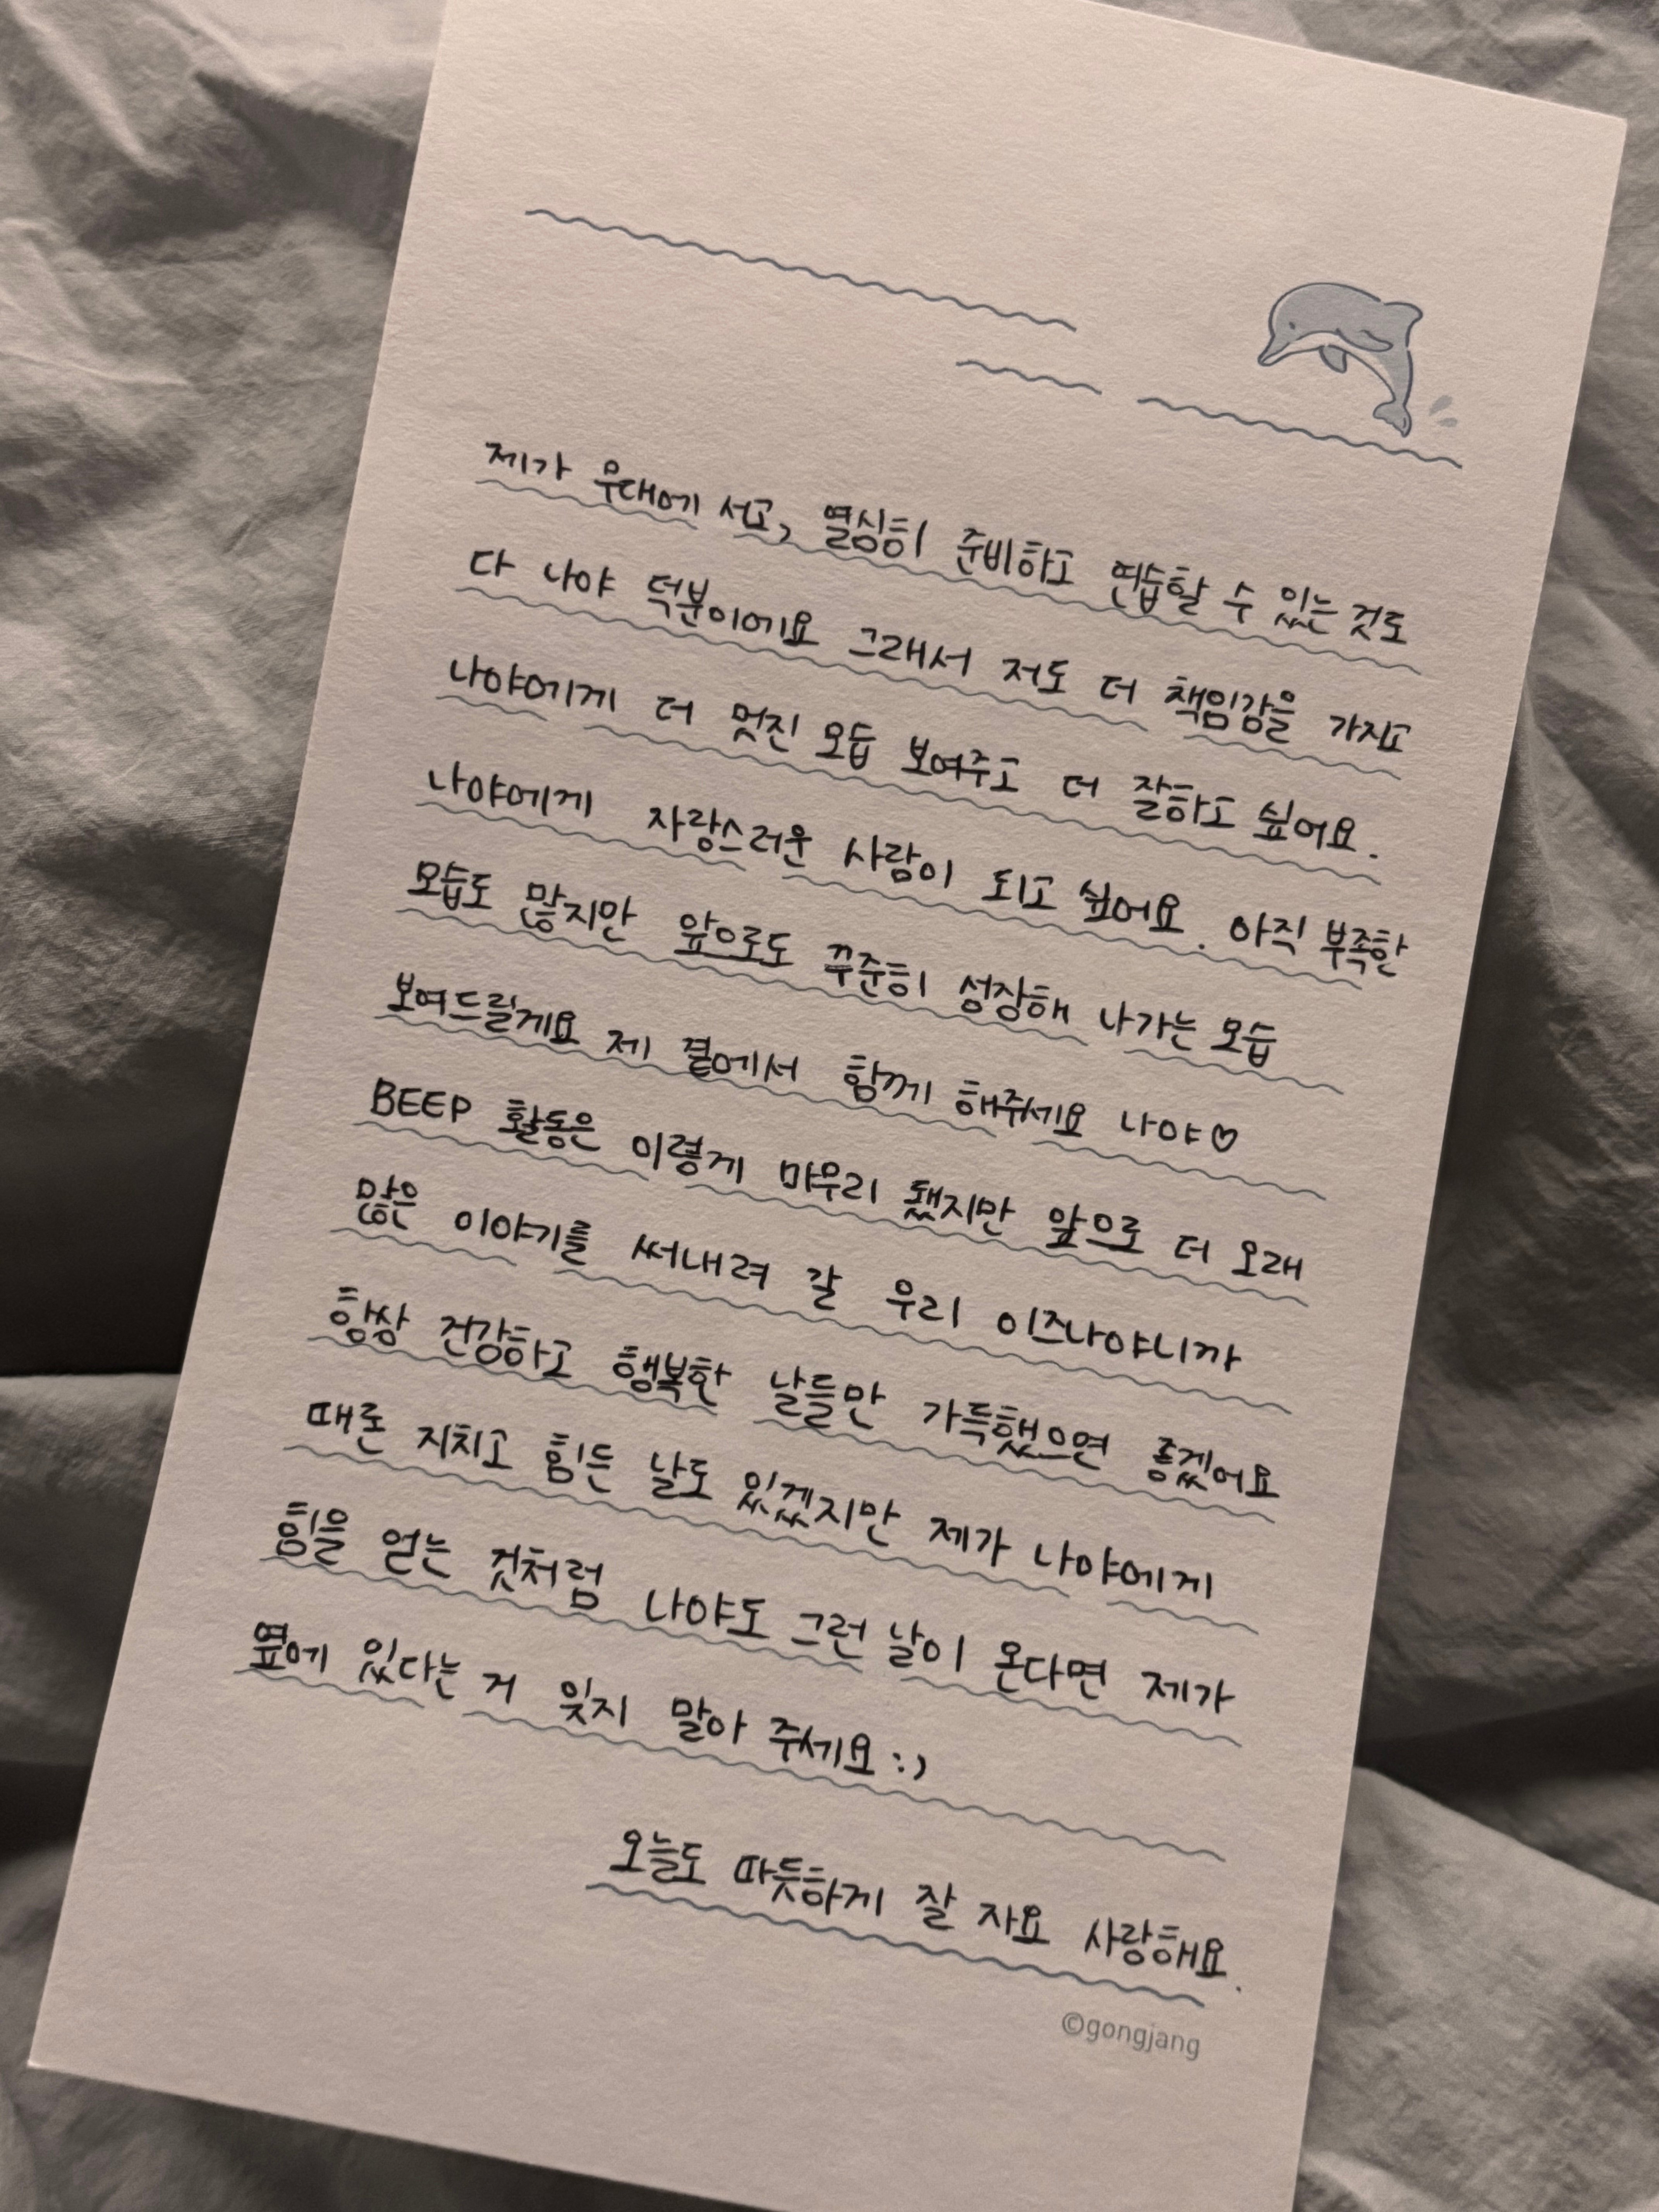 제가 무대에 서고, 열심히 준비하고 연습할 수 있는 것도
다 나야 덕분이에요 그래서 저도 더 책임감을 가지고
나야에게 더 멋진 모습 보여주고 더 잘하고 싶어요.
나야에게 자랑스러운 사람이 되고 싶어요. 아직 부족한
모습도 많지만 앞으로도 꾸준히 성장해 나가는 모습
보여드릴게요 제 곁에서 함께 해주세요 나야♡
BEEP 활동은 이렇게 마무리 됐지만 앞으로 더 오래
많은 이야기를 써내려 갈 우리 이즈나야니까
항상 건강하고 행복한 날들만 가득했으면 좋겠어요
때론 지치고 힘든 날도 있겠지만 제가 나야에게
힘을 얻는 것처럼 나야도 그런 날이 온다면 제가
옆에 있다는 거 잊지 말아 주세요 :)
오늘도 따듯하게 잘 자요 사랑해요.
©gongjang